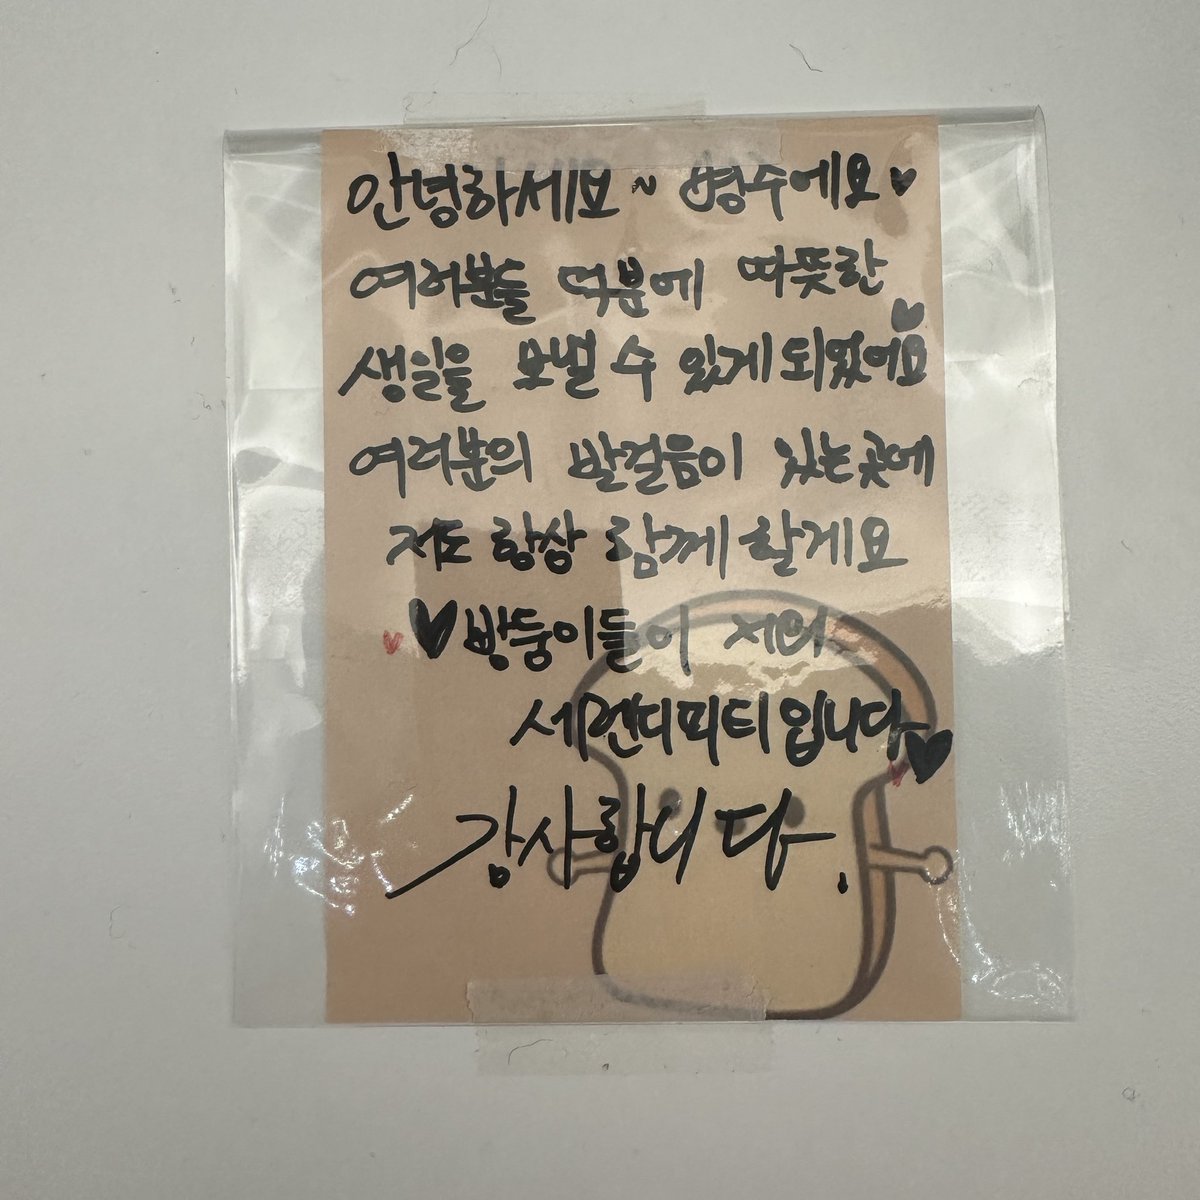 안녕하세요~ 병수에요♥
여러분들 덕분에 따뜻한
생일을 보낼 수 있게 되었어요♥
여러분의 발걸음이 있는 곳에
저도 항상 함께 할게요
♥♥방둥이들이 저의
세렌디피티입니다♥♥
감사합니다.